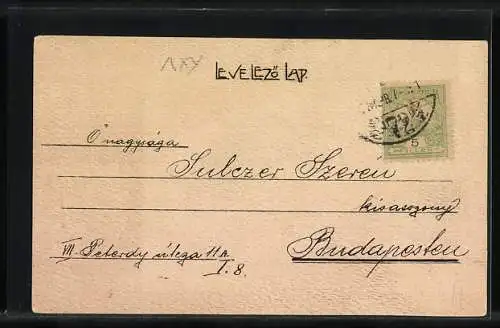 LEVELEZŐ LAP.
Ő nagysága
Sulczer Szeren
kisasszony
Budapesten
VII. Peterdy útcza 11 a.
I. 8.
5